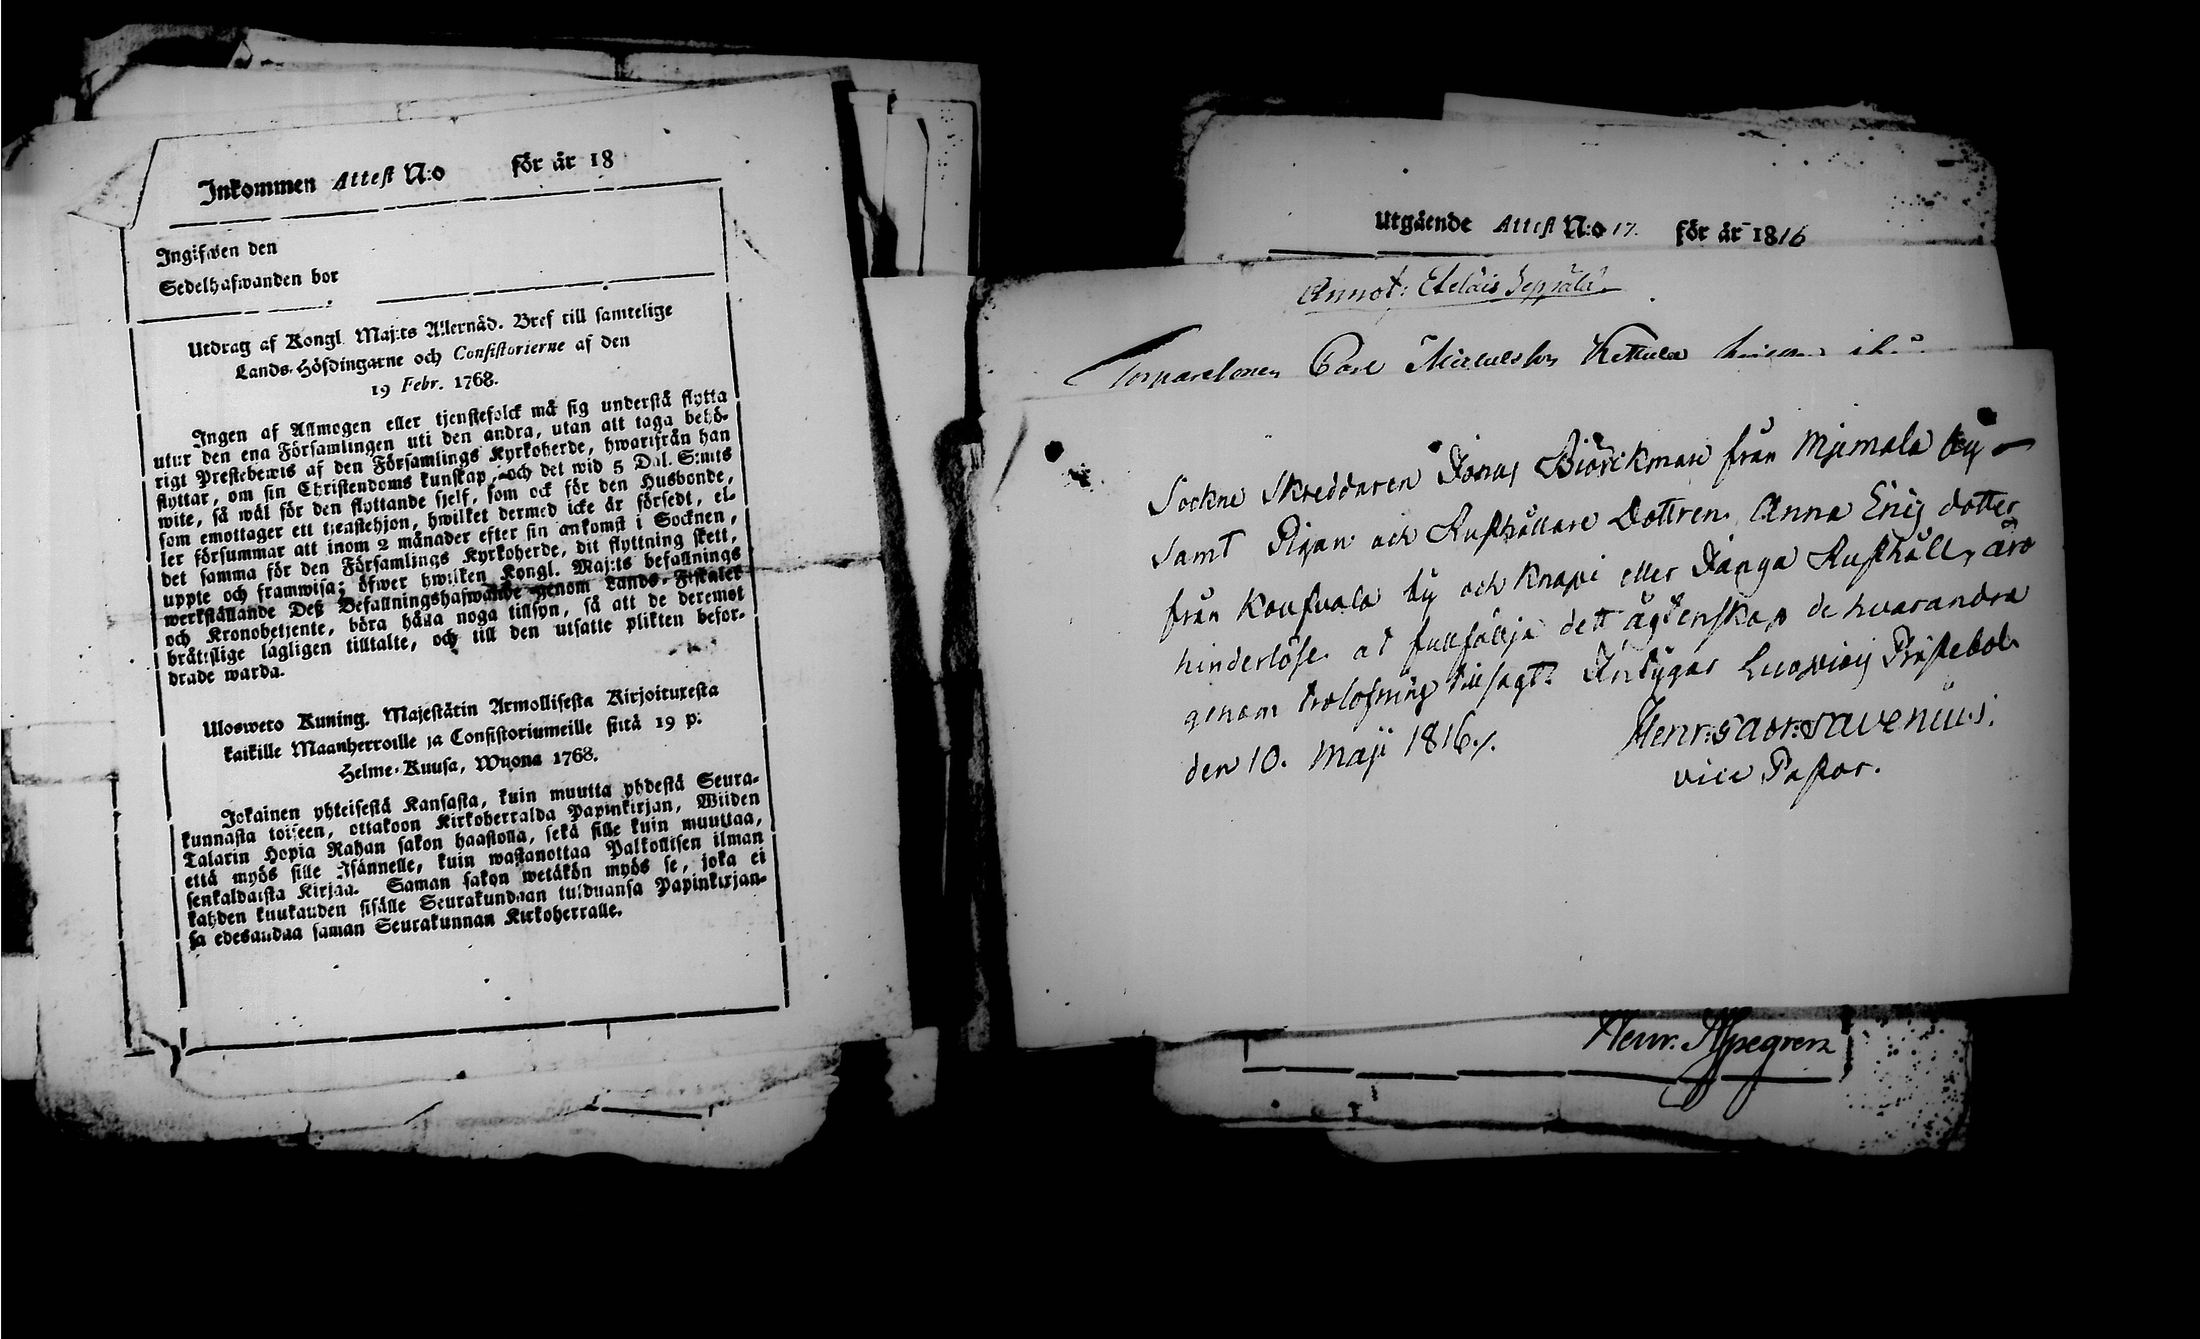 Inkommen Attest N:o för år 18
Ingifwen den
Sedelhafwanden bor
Utdrag af Kongl. Maj:ts Allernåd. Bref till samtelige
Lands-Höfdingarne och Consistorierne af den
19 Febr. 1768.
Ingen af Allmogen eller tjenstefolck må sig understå flytta
utur den ena Församlingen uti den andra, utan att taga behö-
rigt Prestebewis af den Församlings Kyrkoherde, hwarifrån han
flyttar, om sin Christendoms kunskap, och det wid 5 Dal. S:mts
wite, så wäl för den flyttande sjelf, som ock för den Husbonde,
som emottager ett tjenstehjon, hwilket dermed icke är försedt, el-
ler försummar att inom 2 månader efter sin ankomst i Socknen,
det samma för den Församlings Kyrkoherde, dit flyttning skett,
uppte och framwisa; öfwer hwilken Kongl. Maj:ts befallnings
werkställande Deß Befallningshafwande genom Lands-Fiskaler
och Kronobetjente, böra hålla noga tillsyn, så att de deremot
bråttslige lagligen tilltalte, och till den utsatte plikten befor-
drade warda.
Ulosweto Kuning. Majestätin Armollisesta Kirjoituxesta
kaikille Maanherroille ja Consistoriumeille siitä 19 p:
Helme-Kuusa, Wuona 1768.
Jokainen yhteisestä Kansasta, kuin muutta yhdestä Seura-
kunnasta toiseen, ottakoon Kirkoherralda Papinkirjan, Wiiden
Talarin Hopia Rahan sakon haastolla, sekä sille kuin muuttaa,
että myös sille Isännelle, kuin wastanottaa Palkollisen ilman
senkaldaista Kirjaa. Saman sakon wetäkön myös se, joka ei
kahden kuukauden sisälle Seurakundaan tulduansa Papinkirjan-
sa edesandaa saman Seurakunnan Kirkoherralle.
Utgående Attest N:o 17. för år 1816
Annot: Eteläis Seppälä.
Torparesonen Carl Kettula
Sockne Skreddaren Jonas Biörckman från Mjemala by
samt Pigan och Rusthållare Dottren Anna Erics dotter
från Koufvala by och Knapi eller Janga Rusthåll, äro
hinderlöse at fullfölja dett ägtenskap de hvarandra
genom trolofning tillsagt. Intygar Ludvicij Prästebol
den 10. Maji 1816./. Henr: Gabr: Avenius.
vice Pastor.
Henr. Alpegren